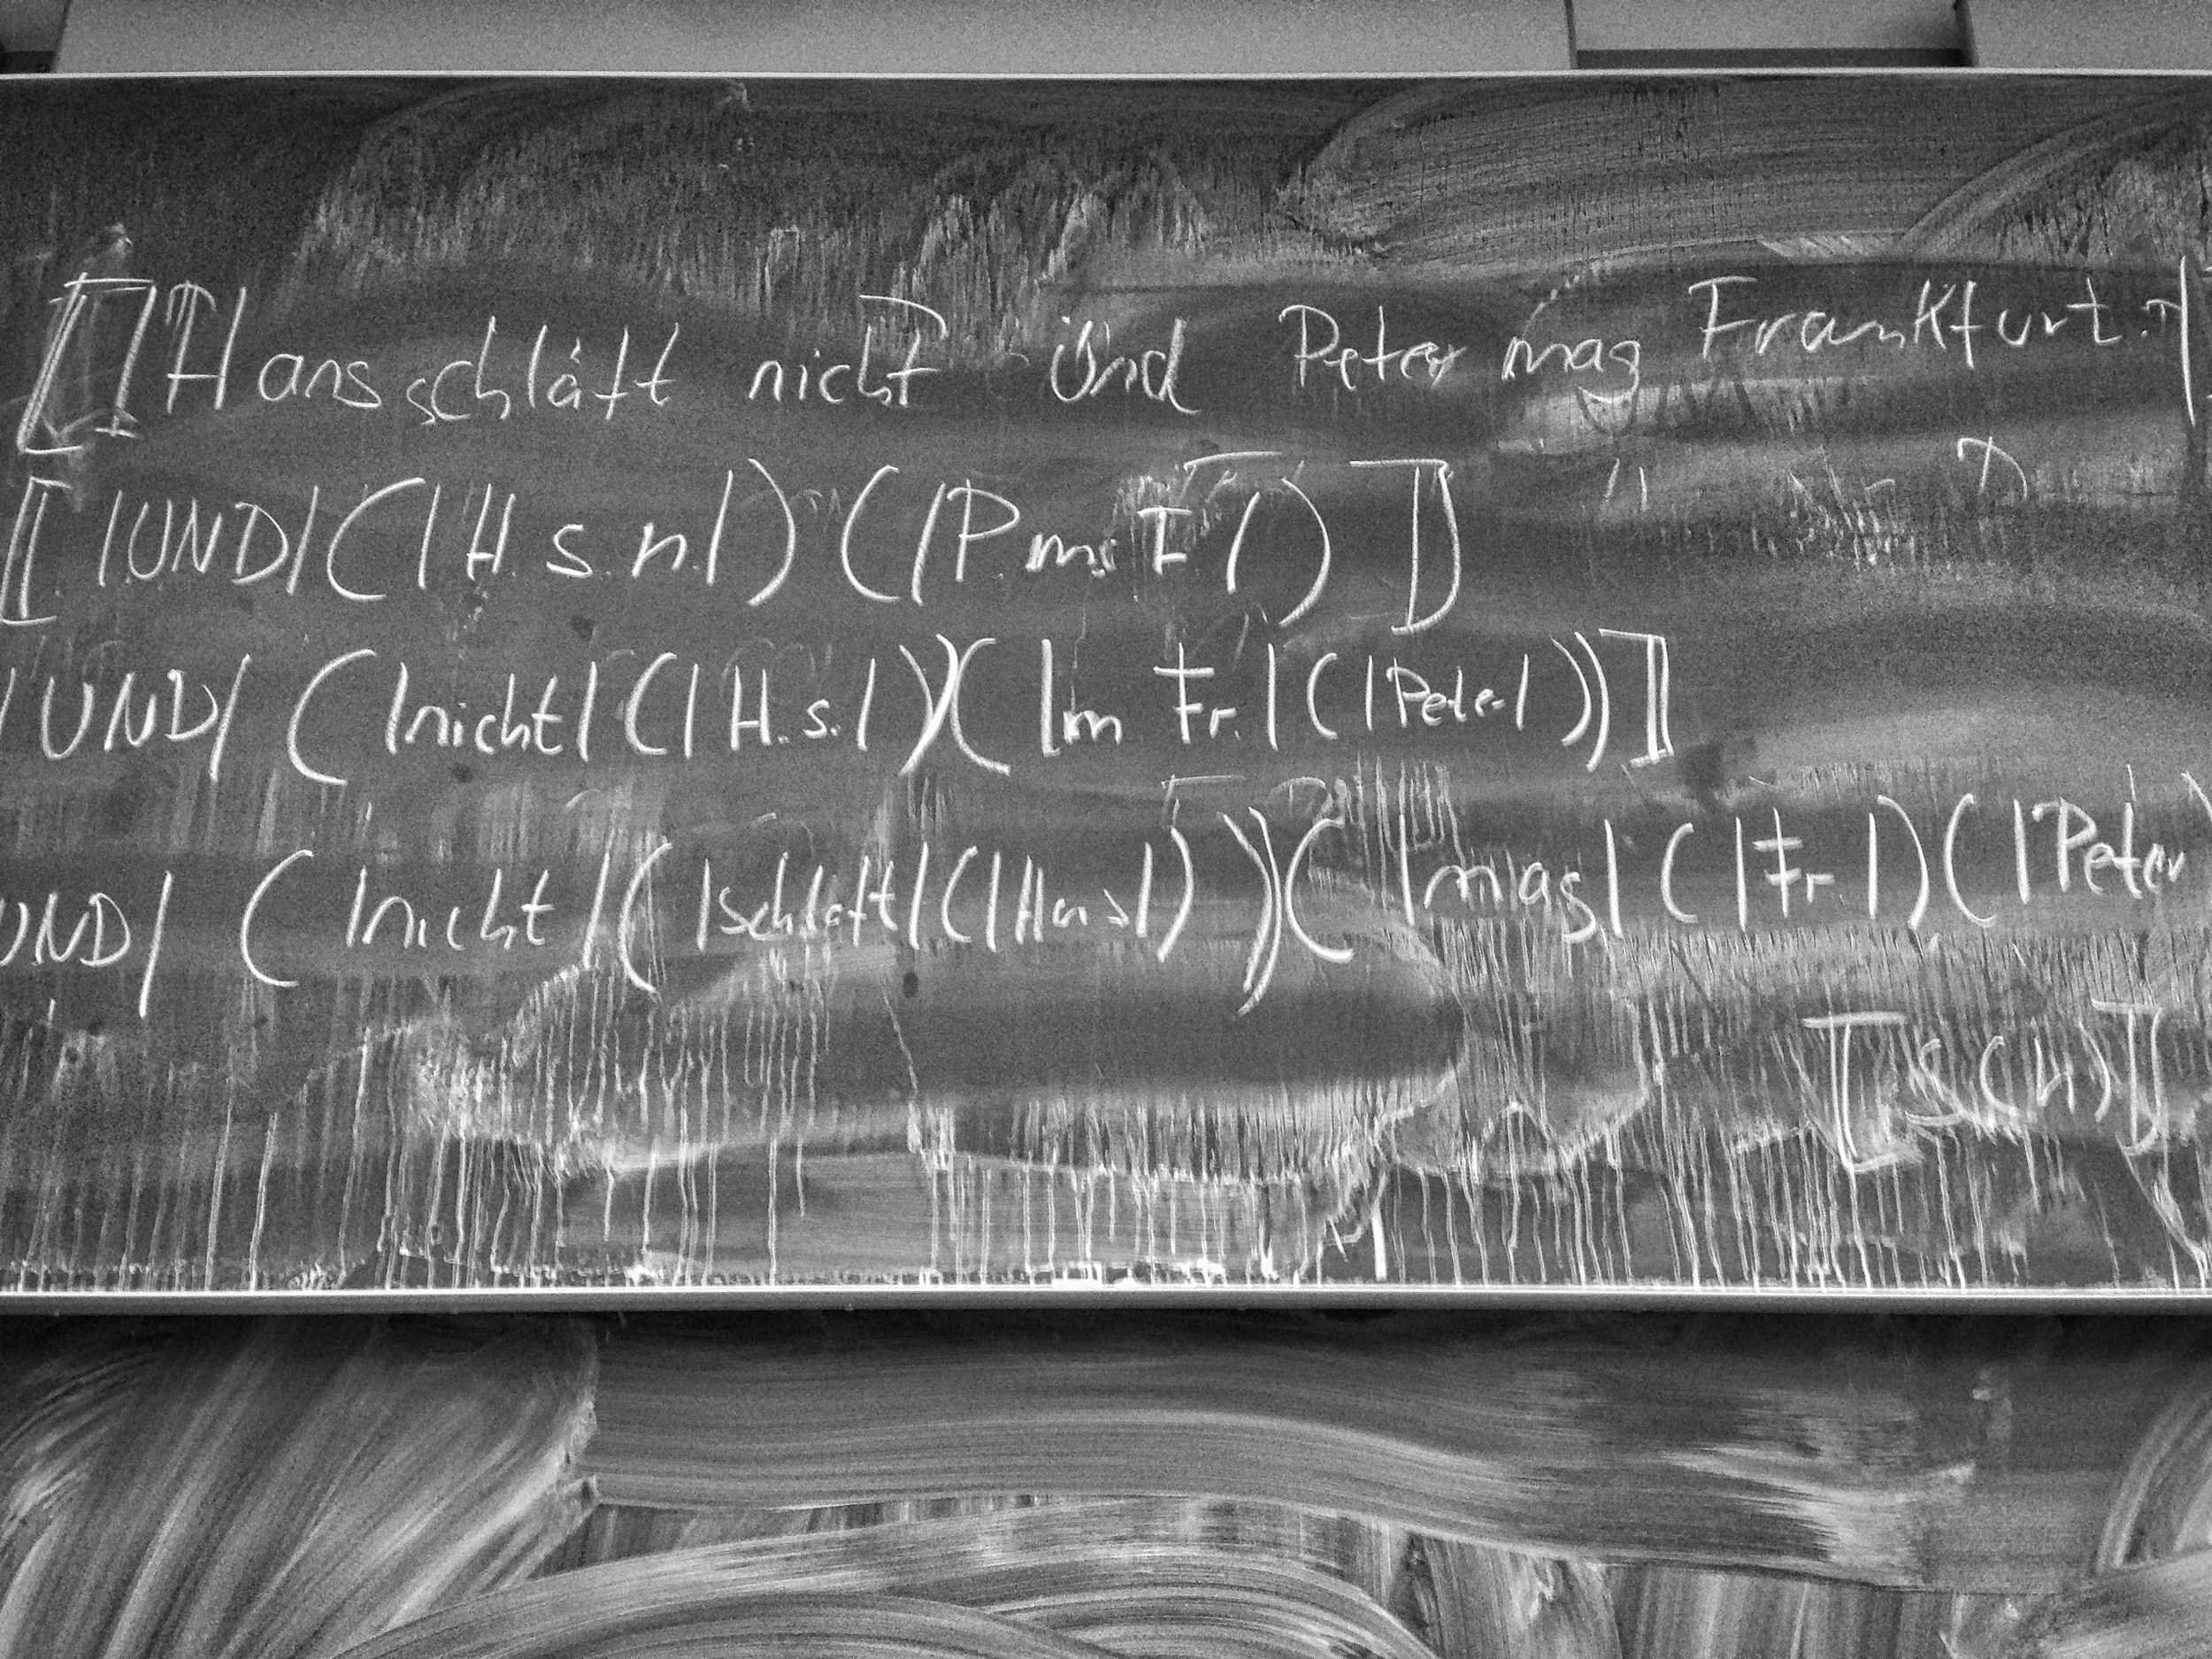 ⟦|Hans schläft nicht und Peter mag Frankfurt.|
⟦|UND|(|H. s. n.|)(|P. m. F|)⟧
|UND|(|nicht|(|H. s.|)(|m Fr.|(|Peter|))⟧
UND|(|nicht|(|schläft|(|Hans|)))(|mag|(|Fr.|)(|Peter
⟦S(h)⟧